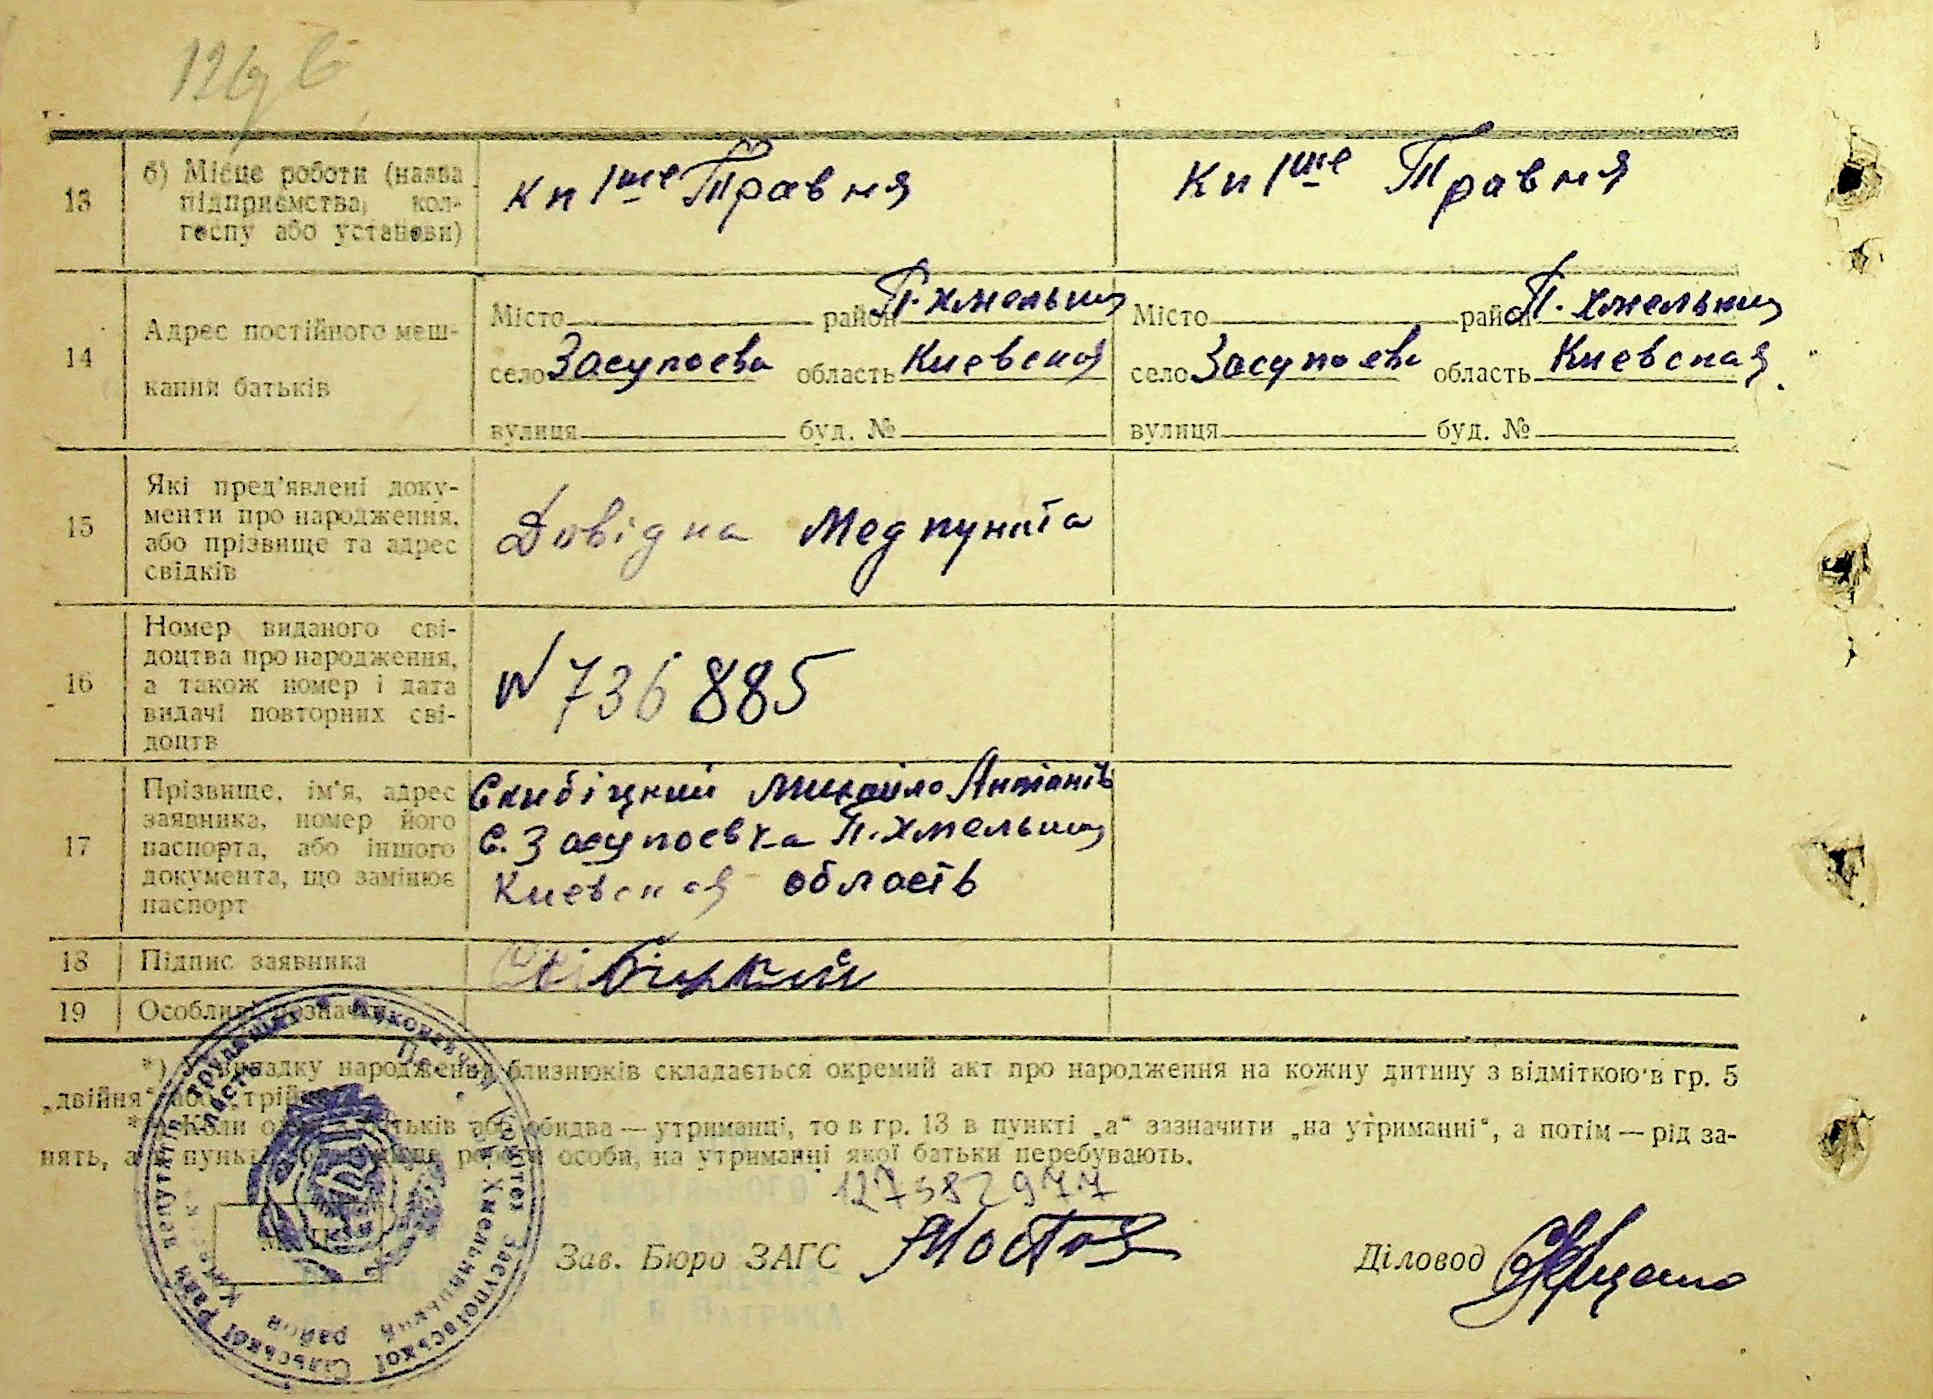 13
б) Місце роботи (назва
підприємства, кол-
госпу або установи)
Кп 1ше Травня
Кп 1ше Травня
14
Адрес постійного меш-
кання батьків
Місто район П-Хмельниц
село Засупоевка область Киевская
вулиця буд. №
Місто район П. Хмельниц
село Засупоевка область Киевская
вулиця буд. №
15
Які пред'явлені доку-
менти про народження,
або прізвище та адрес
свідків
Довідка Медпункта
16
Номер виданого сві-
доцтва про народження,
а також номер і дата
видачі повторних сві-
доцтв
N 736885
17
Прізвище, ім'я, адрес
заявника, номер його
паспорта, або іншого
документа, що замінює
паспорт
Скибіцкий Михайло Антонів
С. Засупоевка П. Хмельниц
Киевская область
18 Підпис заявника
Скібіцкий
19 Особливі позначки
*) випадку народження близнюків складається окремий акт про народження на кожну дитину з відміткою в гр. 5
„двійня“ або „трійня“
Коли батьків або обидва — утриманці, то в гр. 13 в пункті „а“ зазначити „на утриманні“, а потім — рід за-
нять, а роботи особи, на утриманні якої батьки перебувають.
127382977
Зав. Бюро ЗАГС
Діловод
Виконавчий Комітет Засупоївської Сільської Ради депутатів трудящих
Хмельницький район